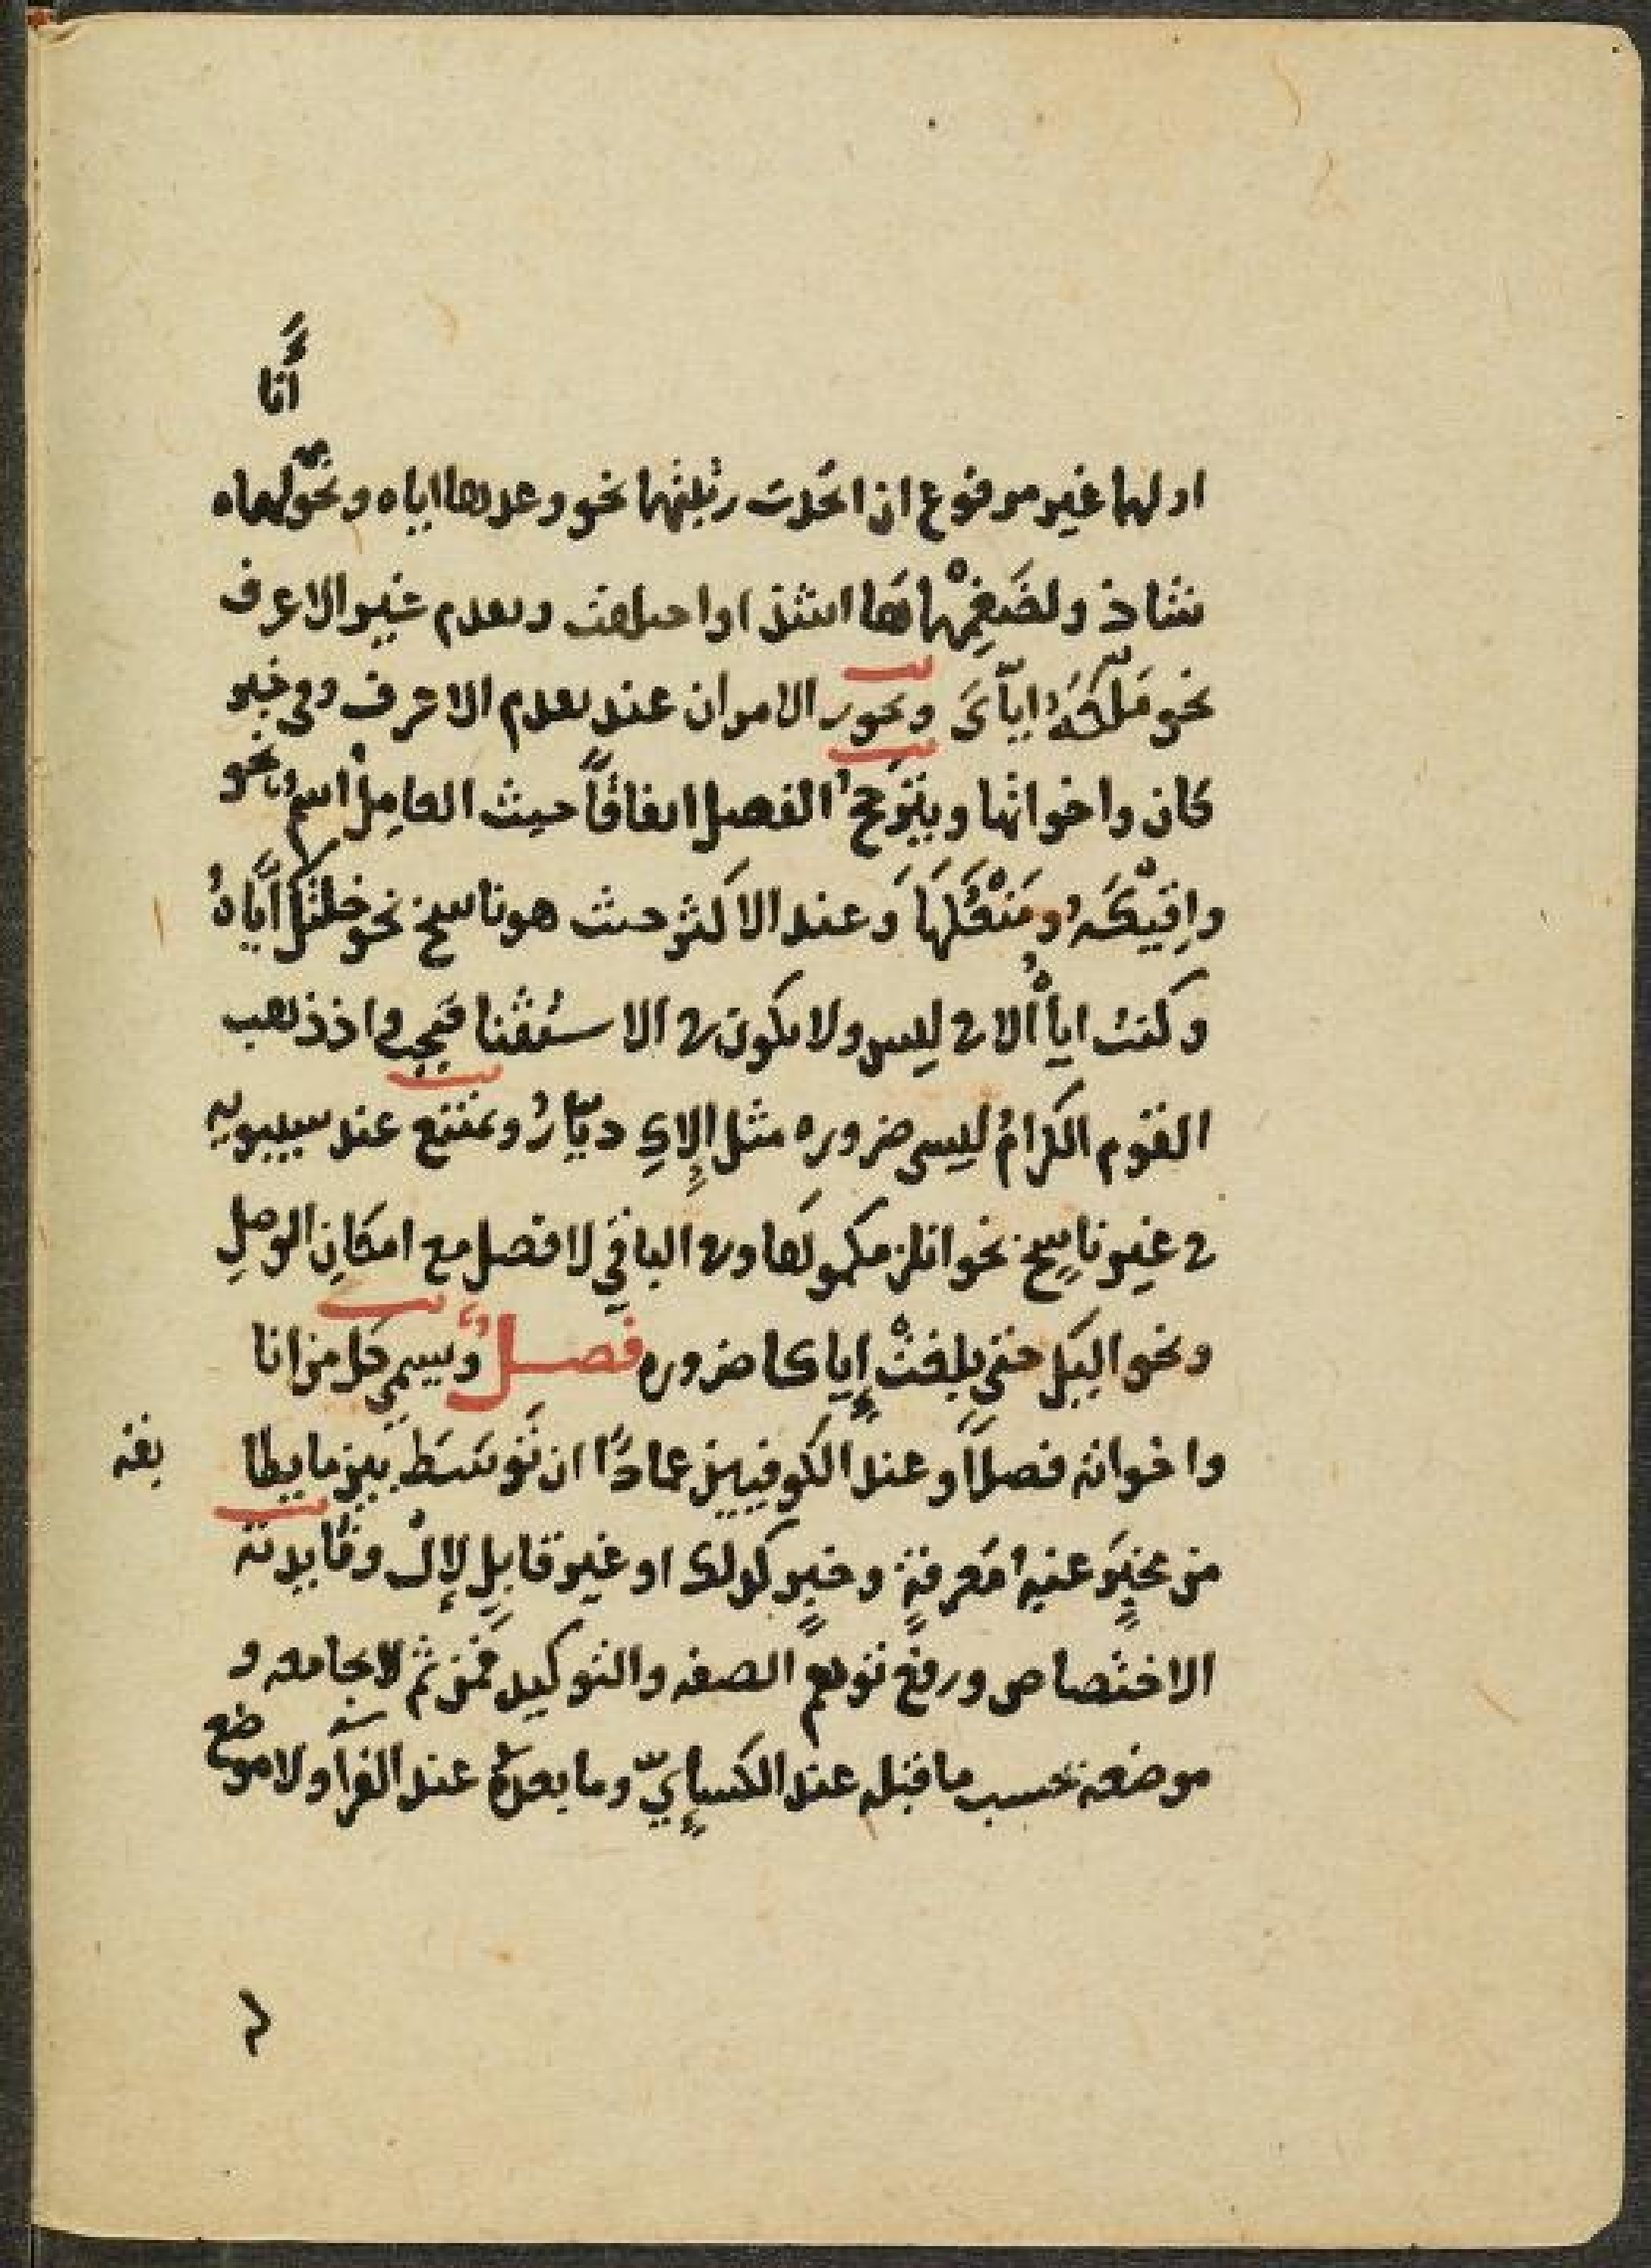 انا
اولهما غير مرفوع ان اتحدت رتبتهما نحو وعدىها اياه ونحو لهماه
شاذ ولضغمهماها اشذ او اختلفت وتقدم غير الاعرف
نحو مَلّكَهُ اياّىَ ويجوز الامران عند تقدم الاعرف وفي خبر
كان واخواتها ويترجح الفصل اتفاقاً حيث العامِل اسمٌ نحو
واقيكَهُ ومَنْعُكَهَا وَعند الاكثر حيث هو ناسخ نحو خلتك اياهُ
وكنت اياهُ الا في ليس ولا يكون في الاستثنا فيجب واذ ذهب
القوم الكرامُ ليسى ضروره مثل الاكِ ديّارُ ويمتنع عند سيبويه
في غير ناسِخ نحو انلزمكموها وفي الباقي لا فصل مع امكانِ الوصلِ
ونحو اليكِ حتى بلغتْ اِياكا ضروره فصل ويسمى كل من انا
واخواته فصلاً وعند الكوفيين عماداً ان توسَّطَ بين ما يطا
بقه
من مخبَرٍ عنه معرفةٍ وخبرٍ كذلك او غير قابلٍ لاِلْ وفايدته
الاختصاص ورفع توهم الصفه والتوكيد فمن ثم لا يجامعه و
موضعه بحسب ما قبله عند الكسايِيّ وما بعدهُ عند الفرآ ولا موضع